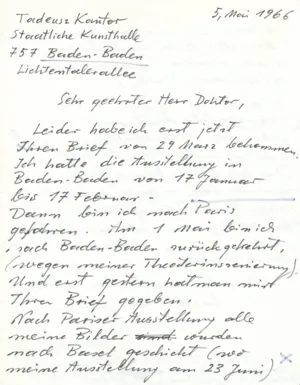 5, Mai 1966
Tadeusz Kantor
Staatliche Kunsthalle
757 Baden-Baden
Lichtentalerallee
Sehr geehrter Herr Doktor,
Leider habe ich erst jetzt
Ihren Brief von 29 März bekommen.
Ich hatte die Ausstellung in
Baden-Baden von 17 Januar
bis 17 Februar -
Dann bin ich nach Paris
gefahren. Am 1 Mai bin ich
nach Baden-Baden zurückgekehrt,
(wegen meiner Theaterinszenierung).
Und erst gestern hat man mir
Ihren Brief gegeben.
Nach Pariser Ausstellung alle
meine Bilder sind wurden
nach Basel geschickt (wo
meine Ausstellung am 23 Juni)